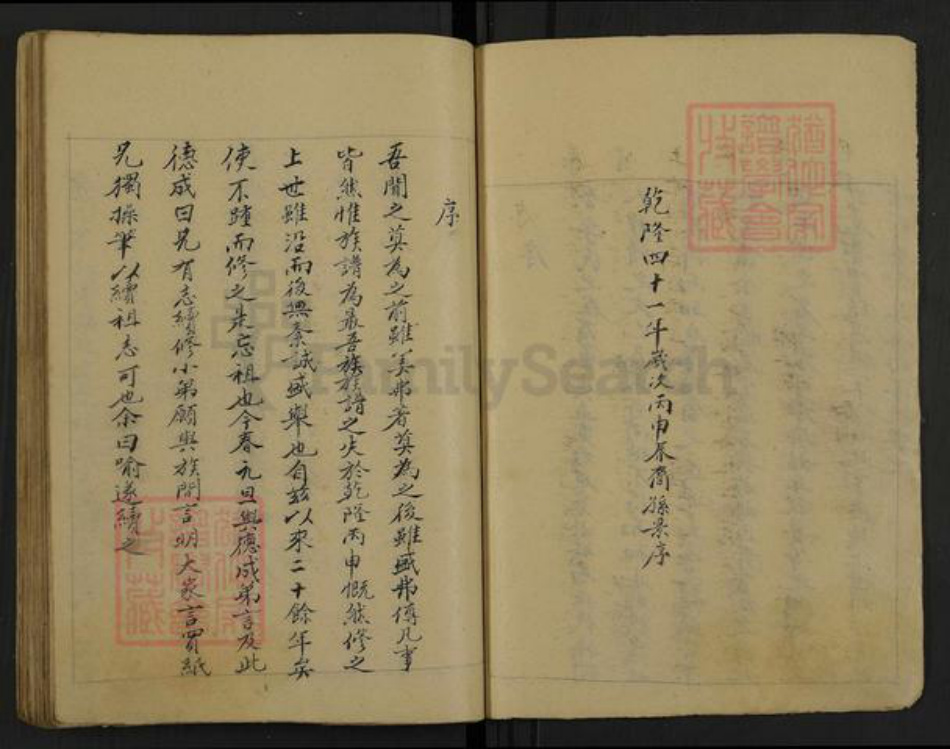 乾隆四十一年歲次丙申春裔孫景序
序
吾聞之莫為之前雖美弗著莫為之後雖盛弗傳凡事
皆然惟族譜為最吾族族譜之失於乾隆丙申慨然修之
上世雖没而後無紊誠盛舉也自茲以來二十餘年矣
使不踵而修之是忘祖也今春元旦與德成弟言及此
德成曰兄有志續修小弟願與族間言明大家言買紙
兄獨操筆以續祖志可也余曰喻遂續之
FamilySearch